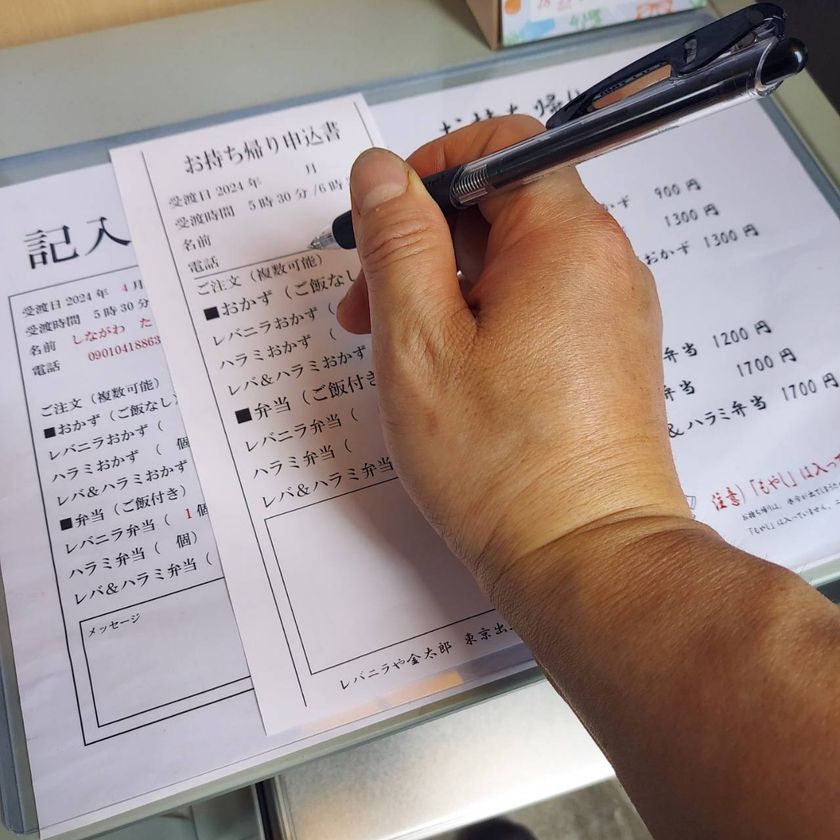 記入
受渡日 2024 年 4 月
受渡時間 5 時 30 分
名前 しながわ た
電話 09010418863
ご注文（複数可能）
■おかず（ご飯なし）
レバニラおかず（
ハラミおかず（ 個
レバ&ハラミおかず
■弁当（ご飯付き）
レバニラ弁当（ 1 個
ハラミ弁当（ 個）
レバ&ハラミ弁当（
メッセージ
お持ち帰り申込書
受渡日 2024 年 月
受渡時間 5 時 30 分 /6 時
名前
電話
ご注文（複数可能）
■おかず（ご飯なし
レバニラおかず（
ハラミおかず（
レバ&ハラミおかず
■弁当（ご飯付き
レバニラ弁当（
ハラミ弁当（
レバ&ハラミ弁当
レバニラや金太郎 東京出
お持ち帰り
かず 900 円
1300 円
おかず 1300 円
弁当 1200 円
弁当 1700 円
&ハラミ弁当 1700 円
注意）「もやし」は入っ
「もやし」は入っていません。